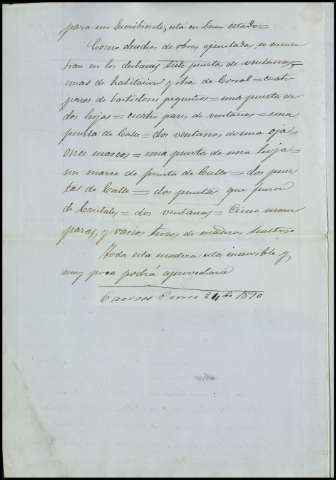 para un Escribiente, está en buen estado=
Como deshechos de obras ejecutadas, se encuen
tran en los desbanes, siete puertas de ventanas=
mas de habitacion y otra de Corral= cuatro
pares de bastidores pequeños= una puerta de
dos hojas= cuatro pares de ventanas= una
puerta de Calle= dos ventanas de una oja=
once marcos= una puerta de una hoja=
un marco de puerta de Calle= dos puer
tas de Calle= dos puertas que fueron
de Cristales= dos ventanas= Cinco mam
paras, y varios trozos de madera
Toda esta madera está inservible y,
muy poca podrá aprovecharse
Caceres Enero 24 de 1870